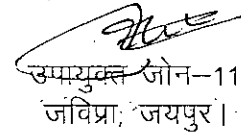 उपायुक्त जोन-11
जविप्रा, जयपुर।